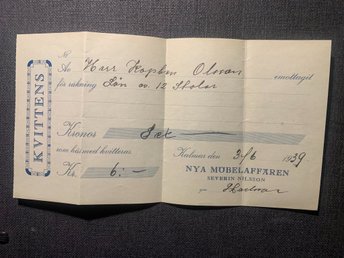 KVITTENS
No
Av Herr Kapten Olsson
emottagit
för räkning Lån av 12 Stolar
Kronor Sex
som härmed kvitteras.
Kalmar den 3/6 1939
Kr. 6:-
NYA MÖBELAFFÄREN
SEVERIN NILSSON